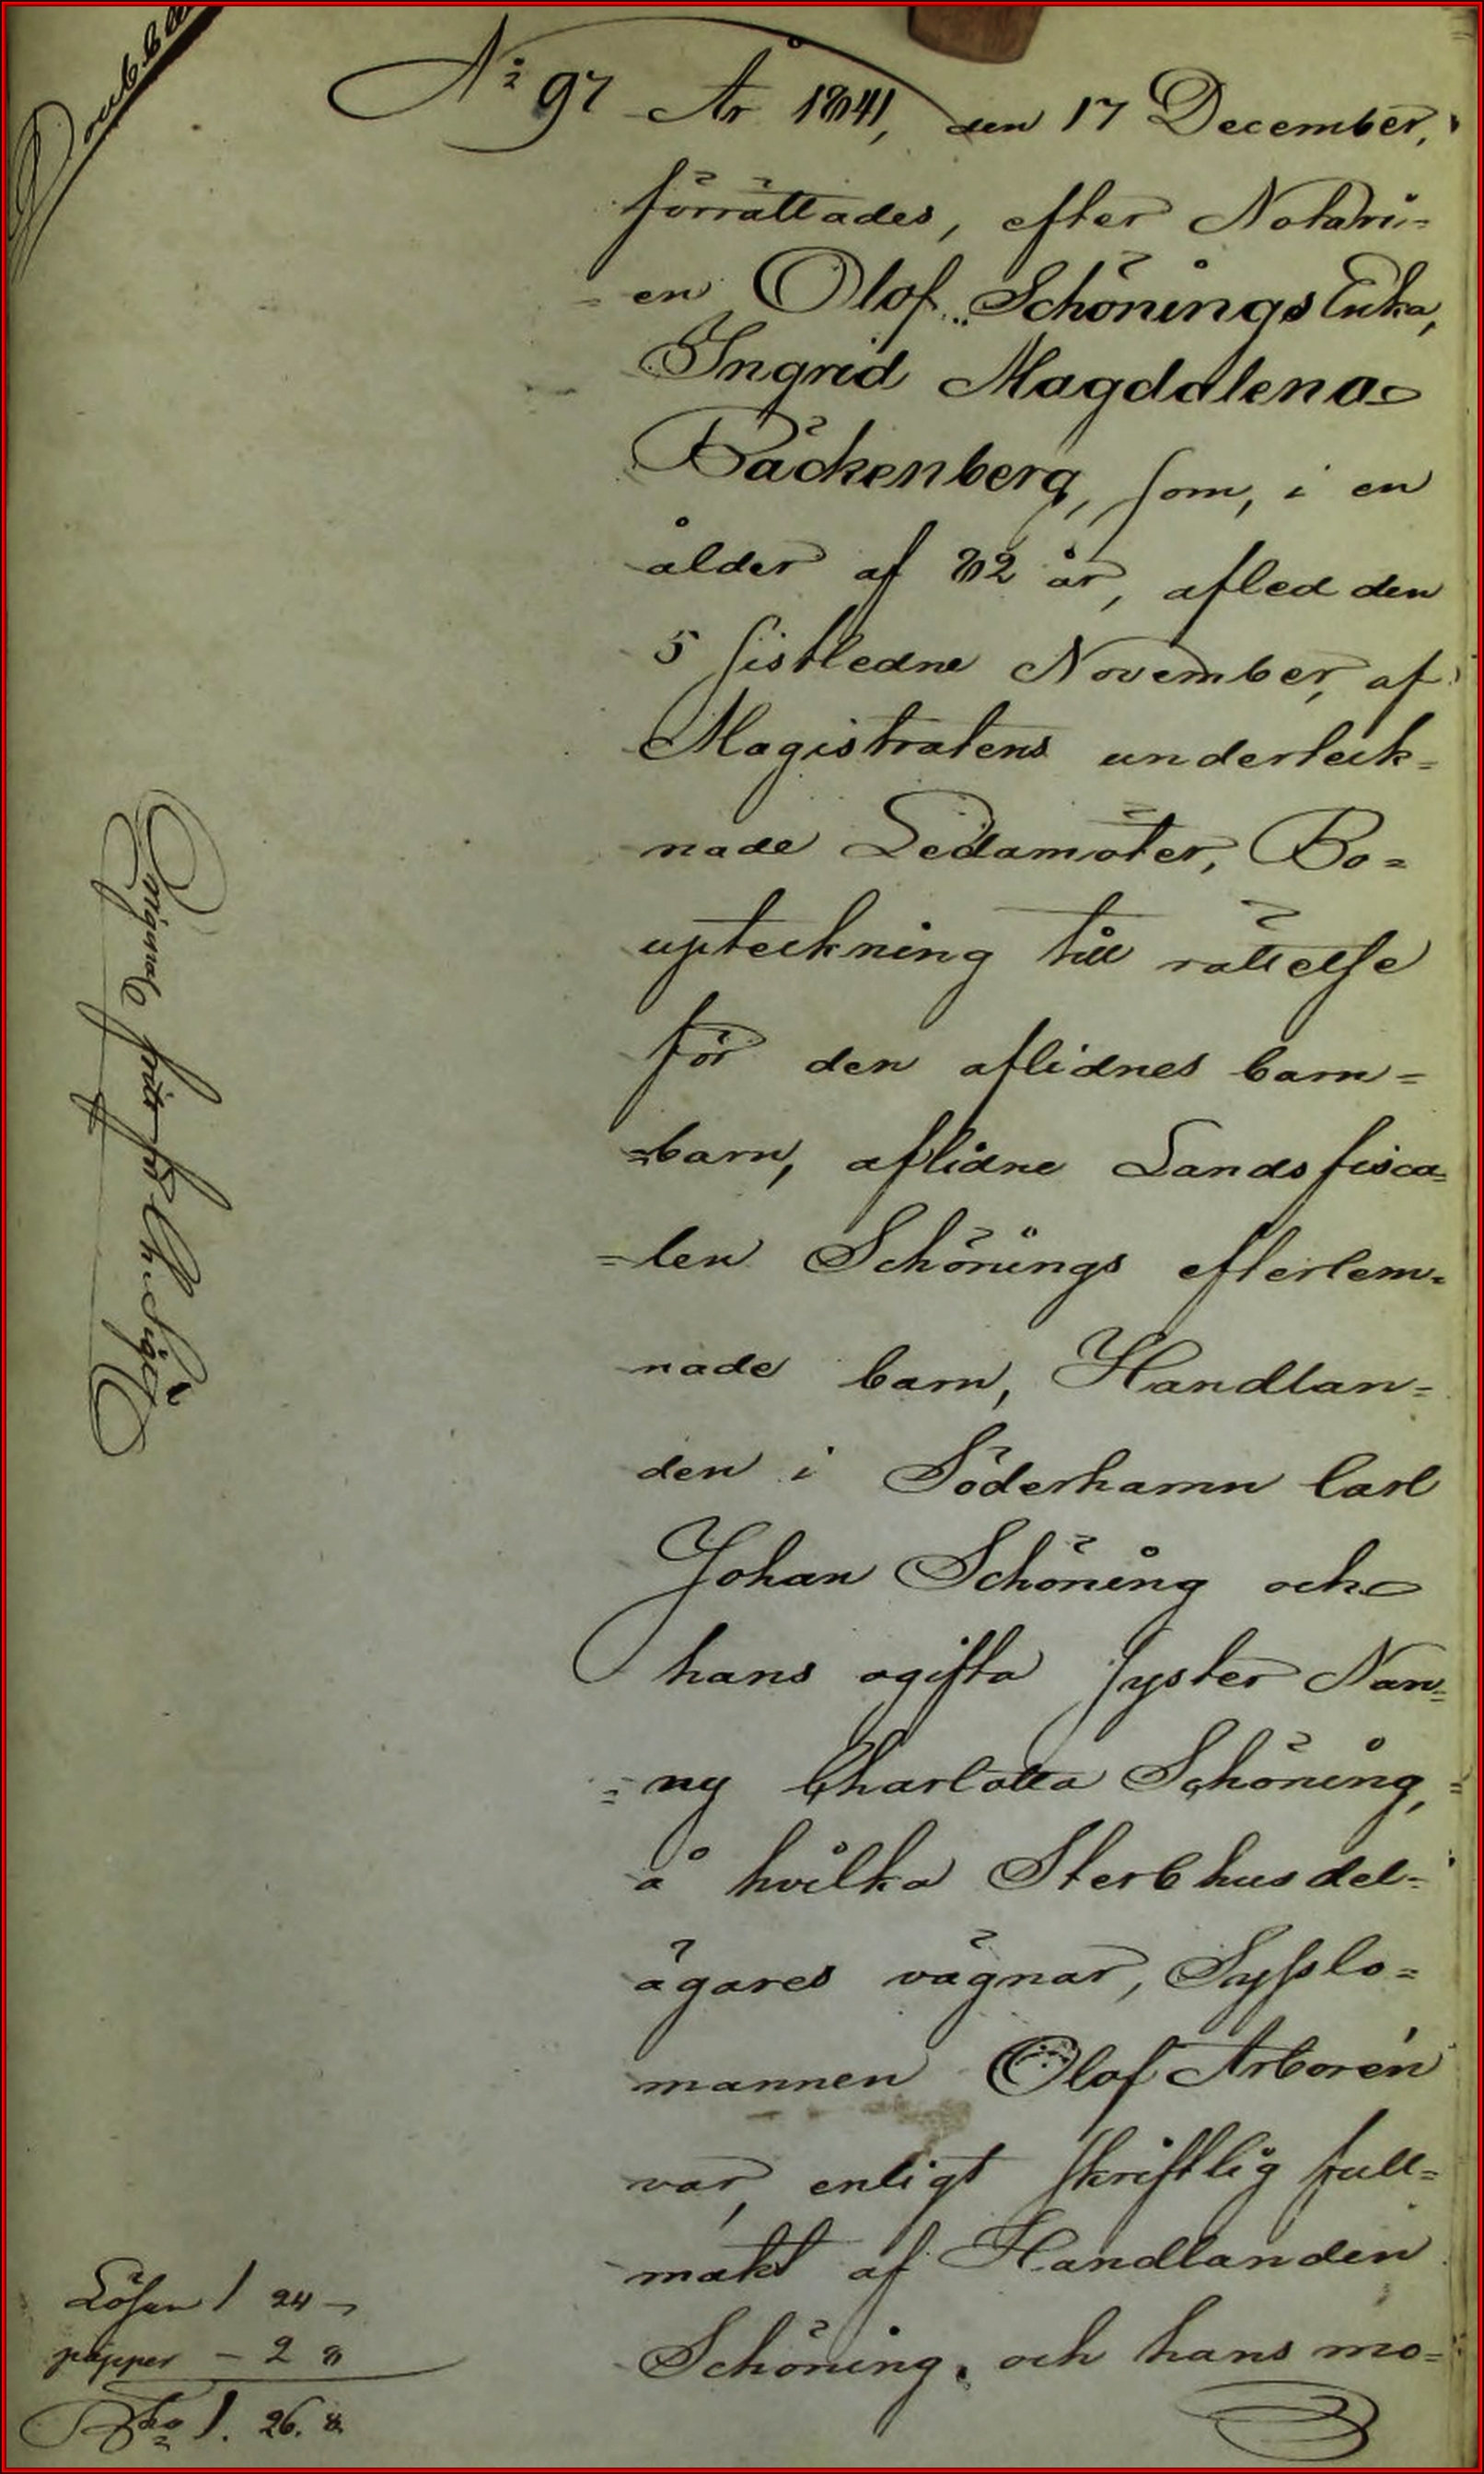 Dubbl
No 97 År 1841, den 17 December,
förrättades, efter Notari=
=en Olof Schönings Enka,
Ingrid Magdalena
Bäckenberg, som, i en
ålder af 82 år, afled den
5 sistledne November, af
Magistratens underteck=
nade Ledamöter, Bo=
upteckning till rättelse
för den aflidnes barn=
=barn, aflidne Landsfisca=
=len Schönings efterlem=
nade barn, Handlan=
den i Söderhamn Carl
Johan Schöning och
hans ogifta syster Nan=
=ny Charlotta Schöning,
å hvilka Sterbhusdel=
ägares vägnar, Syßlo=
mannen Olof Arborén
var, enligt skriftlig full=
makt af Handlanden
Schöning, och hans mo=
Original
Lösen 1 24 -
papper - 2 8
Bko 1. 26. 8.